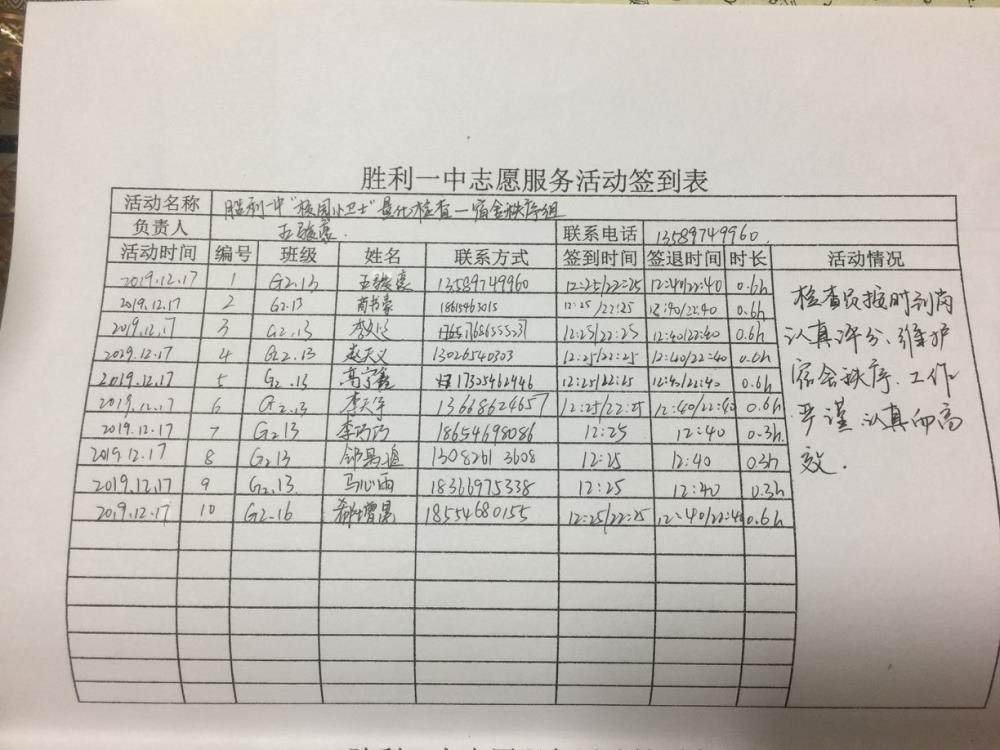 胜利一中志愿服务活动签到表
活动名称 胜利一中"校园小卫士"量化检查一宿舍秩序组
负责人 王骏豪 联系电话 13589749960
活动时间 编号 班级 姓名 联系方式 签到时间 签退时间 时长 活动情况
2019.12.17 1 G2.13 王骏豪 13589749960 12:25/22:25 12:40/22:40 0.6h
2019.12.17 2 G2.13 商书豪 12:25/22:25 12:40/22:40 0.6h
2019.12.17 3 G2.13 12:25/22:25 12:40/22:40 0.6h
2019.12.17 4 G2.13 赵天义 13026540303 12:25/22:25 12:40/22:40 0.6h
2019.12.17 5 G2.13 17305462446 12:25/22:25 12:40/22:40 0.6h
2019.12.17 6 G2.13 李天宇 13668624657 12:25/22:25 12:40/22:40 0.6h
2019.12.17 7 G2.13 李巧巧 18654698086 12:25 12:40 0.3h
2019.12.17 8 G2.13 13082613608 12:25 12:40 0.3h
2019.12.17 9 G2.13 马心雨 18366975338 12:25 12:40 0.3h
2019.12.17 10 G2.16 18554680155 12:25/22:25 12:40/22:40 0.6h
检查员按时到岗
认真评分、维护
宿舍秩序.工作
严谨认真而高
效.